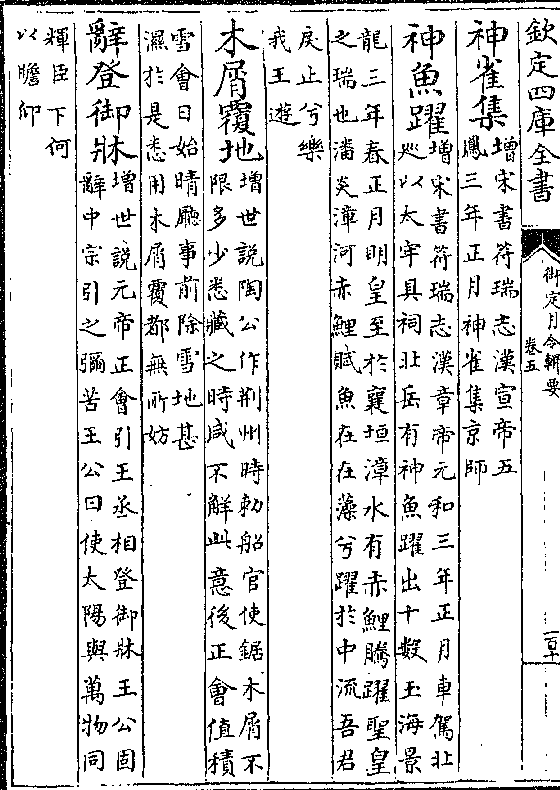 欽定四庫全書
御定月令輯要
卷五
神雀集增宋書符瑞志漢宣帝五
鳳三年正月神雀集京師
神魚躍增宋書符瑞志漢章帝元和三年正月車駕北
巡以太牢具祠北岳有神魚躍出十數玉海景
龍三年春正月明皇至於襄垣漳水有赤鯉騰躍聖皇
之瑞也潘炎漳河赤鯉賦魚在在藻兮躍於中流吾君
戾止兮樂
我王遊
木屑覆地增世說陶公作荆州時勅船官使鋸木屑不
限多少悉藏之時咸不解此意後正會值積
雪會日始晴廳事前除雪地甚
濕於是悉用木屑覆都無所妨
辭登御牀增世說元帝正會引王丞相登御牀王公固
辭中宗引之彌苦王公曰使太陽與萬物同
輝臣下何
以瞻仰